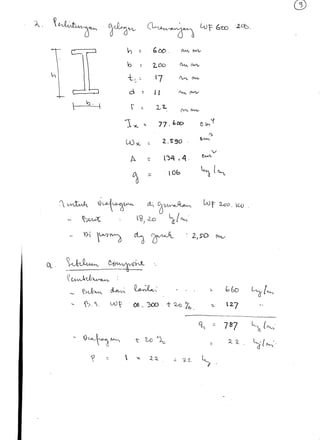 3
2. Perhitungan gelagar (memanjang) WF 600 200.
h = 600 mm
b = 200 mm
t = 17 mm
d = 11 mm
r = 22 mm
Ix = 77.600 cm⁴
Wx = 2.590 cm³
A = 134.4 cm²
g = 106 kg/m
Untuk diafragma di gunakan WF 200.100.
- Berat 18,20 kg/m
- Di pasang dg jarak : 2,50 m
a. Sebelum composite :
Pembebanan :
- Beban dari lantai = 660 kg/m
- B.S. WF 300 + 20 % = 127
q₁ = 787 kg/m
- Diafragma + 20 % = 22 kg/m
P = 1 x 22 = 22 kg.